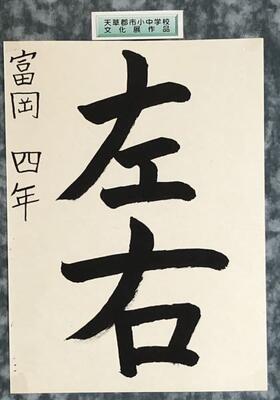 天草郡市小中学校
文化展作品
左右
富岡 四年